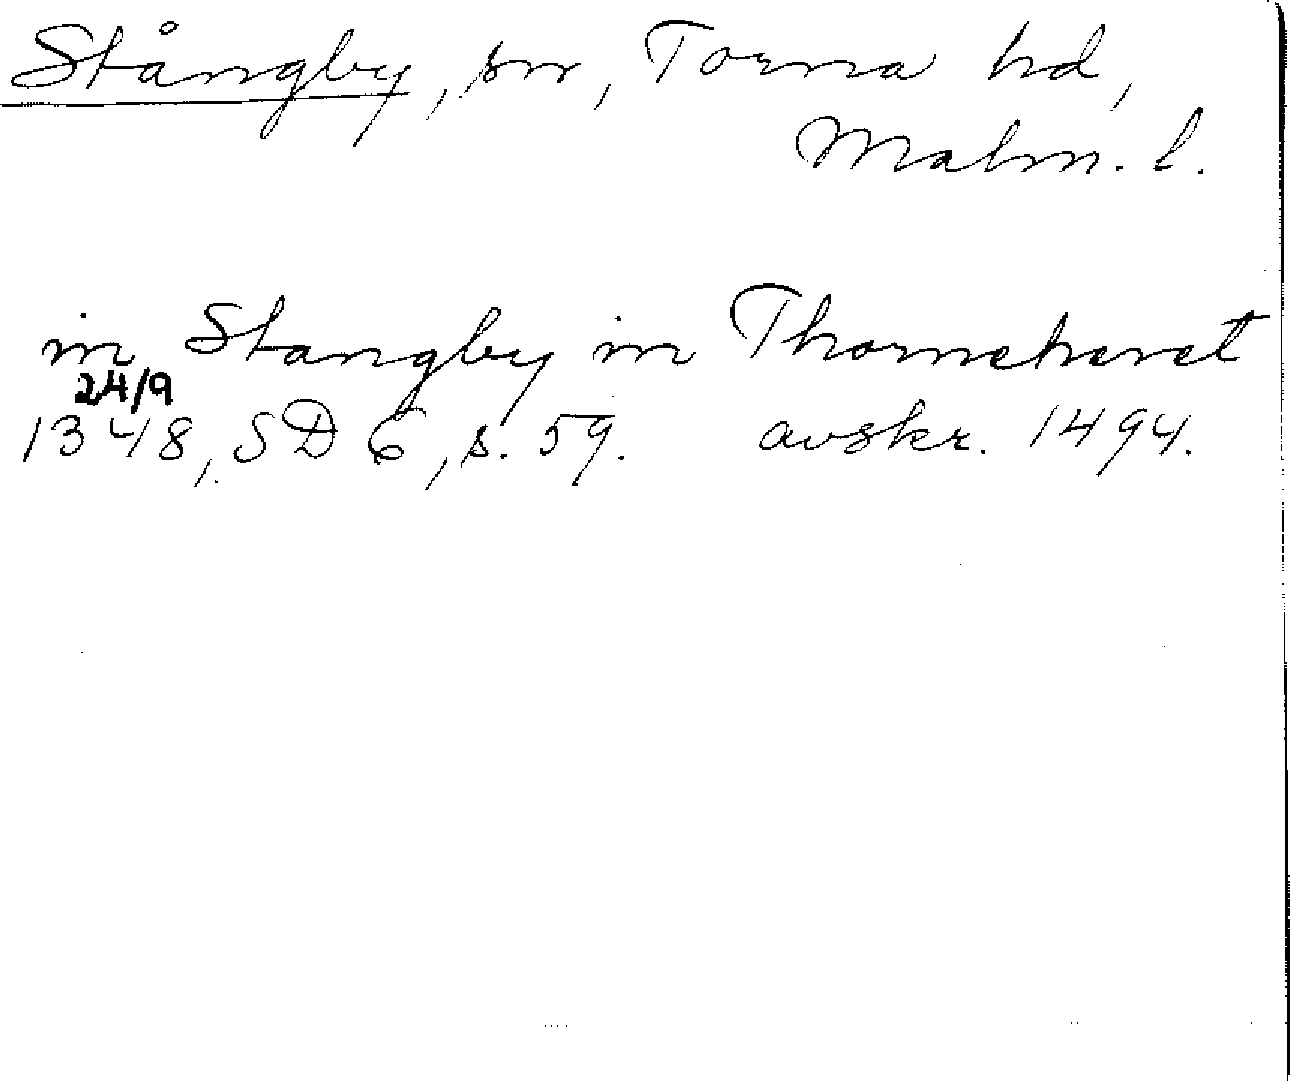 Stångby, sn, Torna hd,
Malm. l.
in Stangby in Thorneheret
24/9
1348, SD 6, s. 59. avskr. 1494.